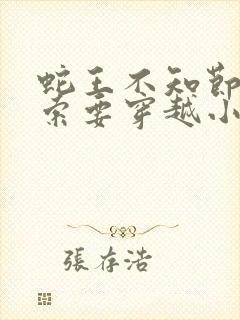 蛇王不知節
索要穿越小
張存浩